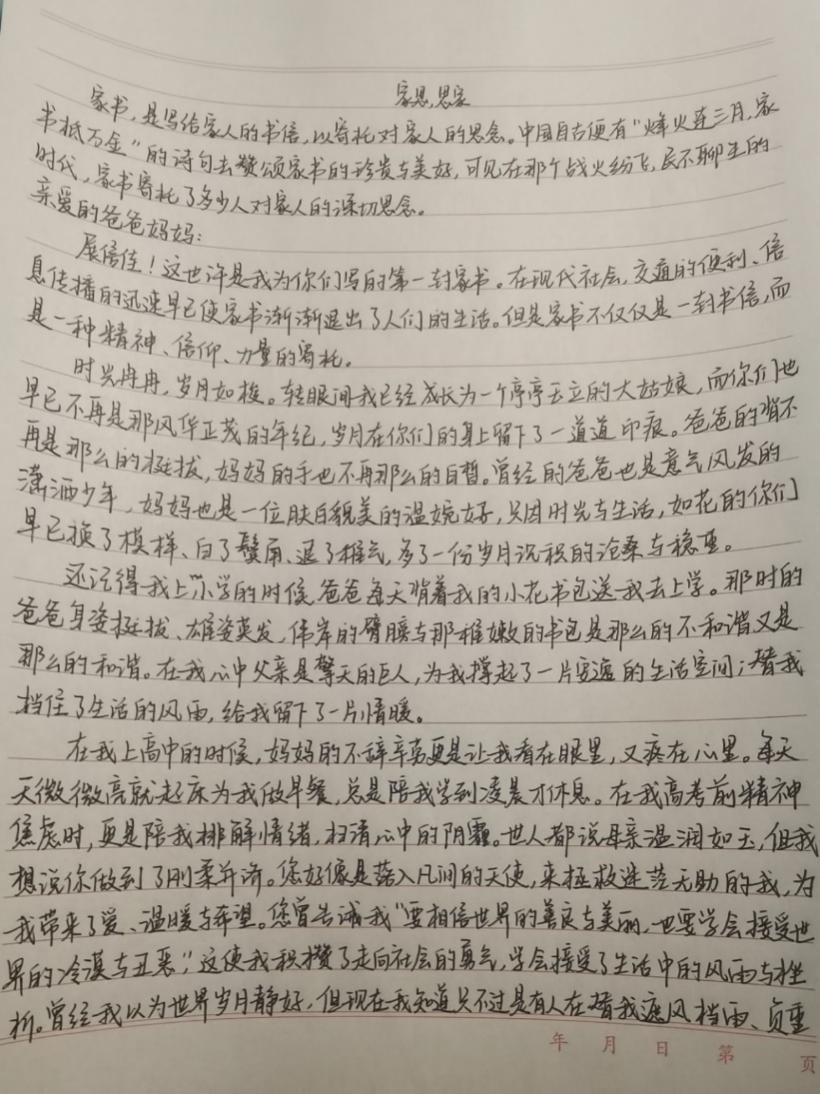 家恩,思家
家书,是写给家人的书信,以寄托对家人的思念。中国自古便有“烽火连三月,家
书抵万金”的诗句去赞颂家书的珍贵与美好,可见在那个战火纷飞,民不聊生的
时代,家书寄托了多少人对家人的深切思念。
亲爱的爸爸妈妈:
展信佳!这也许是我为你们写的第一封家书。在现代社会,交通的便利、信
息传播的迅速早已使家书渐渐退出了人们的生活。但是家书不仅仅是一封书信,而
是一种精神、信仰、力量的寄托。
时光冉冉,岁月如梭。转眼间我已经成长为一个亭亭玉立的大姑娘,而你们也
早已不再是那风华正茂的年纪,岁月在你们的身上留下了一道道印痕。爸爸的背不
再是那么的挺拔,妈妈的手也不再那么的白皙。曾经的爸爸也是意气风发的
潇洒少年,妈妈也是一位肤白貌美的温婉女子,只因时光与生活,如花的你们
早已换了模样、白了鬓角、退了稚气,多了一份岁月沉积的沧桑与稳重。
还记得我上小学的时候,爸爸每天背着我的小花书包送我去上学。那时的
爸爸身姿挺拔、雄姿英发,伟岸的臂膀与那稚嫩的书包是那么的不和谐又是
那么的和谐。在我心中父亲是擎天的巨人,为我撑起了一片安逸的生活空间;替我
挡住了生活的风雨,给我留下了一片情暖。
在我上高中的时候,妈妈的不辞辛劳更是让我看在眼里,又疼在心里。每天
天微微亮就起床为我做早餐,总是陪我学到凌晨才休息。在我高考前精神
焦虑时,更是陪我排解情绪,扫清心中的阴霾。世人都说母亲温润如玉,但我
想说你做到了刚柔并济。您好像是落入凡间的天使,来拯救迷茫无助的我,为
我带来了爱、温暖与希望。您曾告诫我“要相信世界的善良与美丽,也要学会接受世
界的冷漠与丑恶”,这使我积攒了走向社会的勇气,学会接受了生活中的风雨与挫
折。曾经我以为世界岁月静好,但现在我知道只不过是有人在替我遮风挡雨、负重
年 月 日 第 页